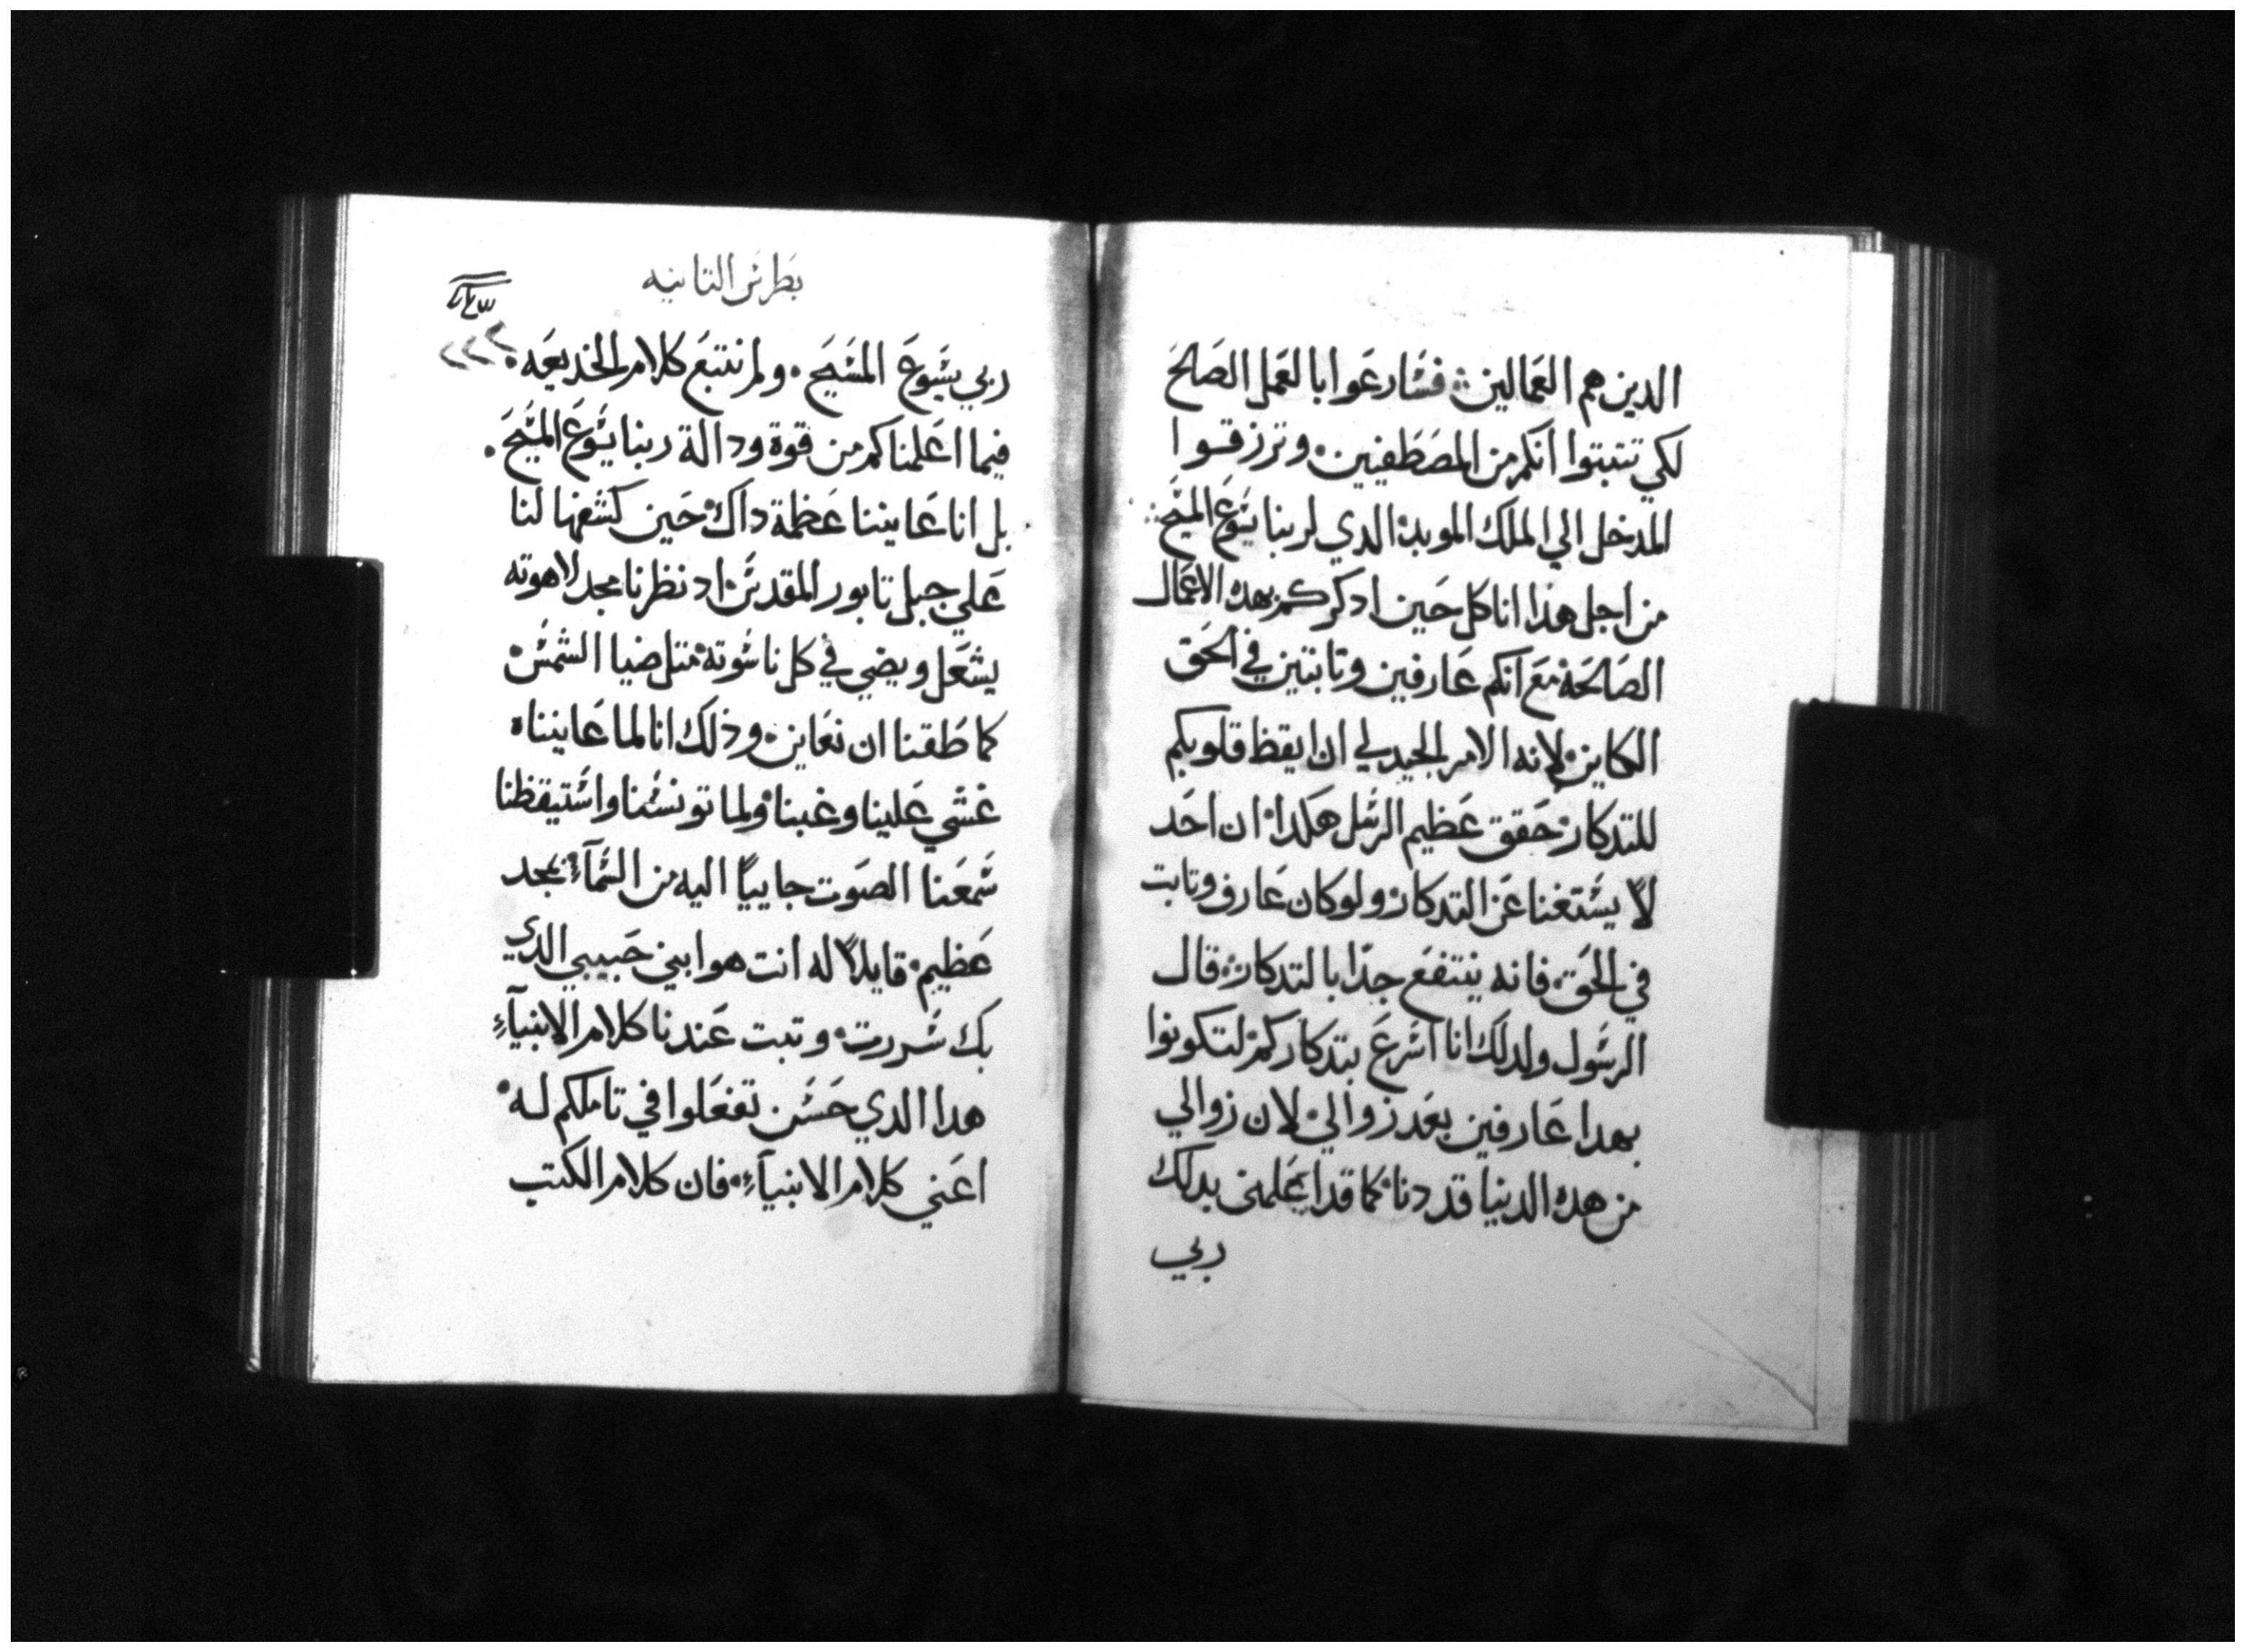 الدين هم العمالين فسارعوا بالعمل الصالح
لكي تتبتوا انكم من المصطفيين وترزقوا
المدخل الي الملك الموبد الدي لربنا يسوع المسيح
من اجل هدا انا كل حين ادكركم بهده الاعمال
الصالحة مع انكم عارفين وتابتين في الحق
الكاين لانه الامر الجيد لي ان ايقظ قلوبكم
للتدكار حقق عظيم الرسل هكدا ان احد
لا يستغنا عن التدكار ولو كان عارف وتابت
في الحق فانه ينتفع جدا بالتدكار قال
الرسول ولدلك انا اسرع بتدكاركم لتكونوا
بهدا عارفين بعد زوالي لان زوالي
من هده الدنيا قد دنا كما قد اعلمني بدلك
ربي
بطرس التانيه
ربي يسوع المسيح ولم نتبع كلام الخديعه
فيما اعلمناكم من قوة ودالة ربنا يسوع المسيح
بل انا عايننا عظمة داك حين كشفها لنا
علي جبل تابور المقدس اد نظرنا مجد لاهوته
يشعل ويضي في كل ناسوته متل ضيا الشمس
كما طقنا ان نعاين وذلك انا لما عاينناه
غشي علينا وغبنا ولما تونسنا واستيقظنا
سمعنا الصوت جاييًا اليه من السمآء بمجد
عظيم قايلاً له انت هو ابني حبيبي الدي
بك سررت وتبت عندنا كلام الانبيآء
هدا الدي حسن تفعلوا في تاملكم له
اعني كلام الانبيآء فان كلام الكتب